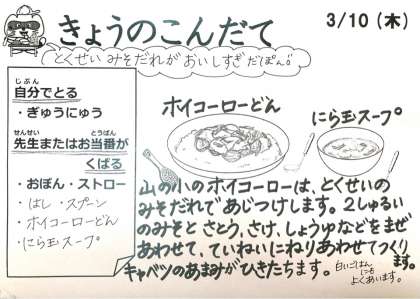 きょうのこんだて
3/10(木)
とくせいみそだれがおいしすぎだぽん!!
じぶん
自分でとる
・ぎゅうにゅう
せんせい とうばん
先生またはお当番が
くばる
・おぼん・ストロー
・はし・スプーン
・ホイコーローどん
・にら玉スープ
ホイコーローどん
にら玉スープ
山の小のホイコーローは、とくせいの
みそだれであじつけします。2しゅるい
のみそとさとう、さけ、しょうゆなどをまぜ
あわせて、ていねいにねりあわせてつくり
ます。
キャベツのあまみがひきたちます。
白いごはん
にも
よくあいます。